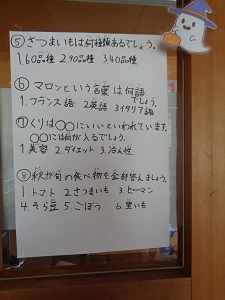 ⑤さつまいもは何種類あるでしょう。
1.60品種 2.90品種 3.40品種
⑥マロンという言葉は何語
でしょう。
1.フランス語 2.英語 3.イタリア語
⑦くりは○○にいいといわれています。
○○には何が入るでしょう。
1.美容 2.ダイエット 3.冷え性
⑧秋が旬の食べ物を全部答えましょう。
1.トマト 2.さつまいも 3.ピーマン
4.そら豆 5.ごぼう 6.里いも